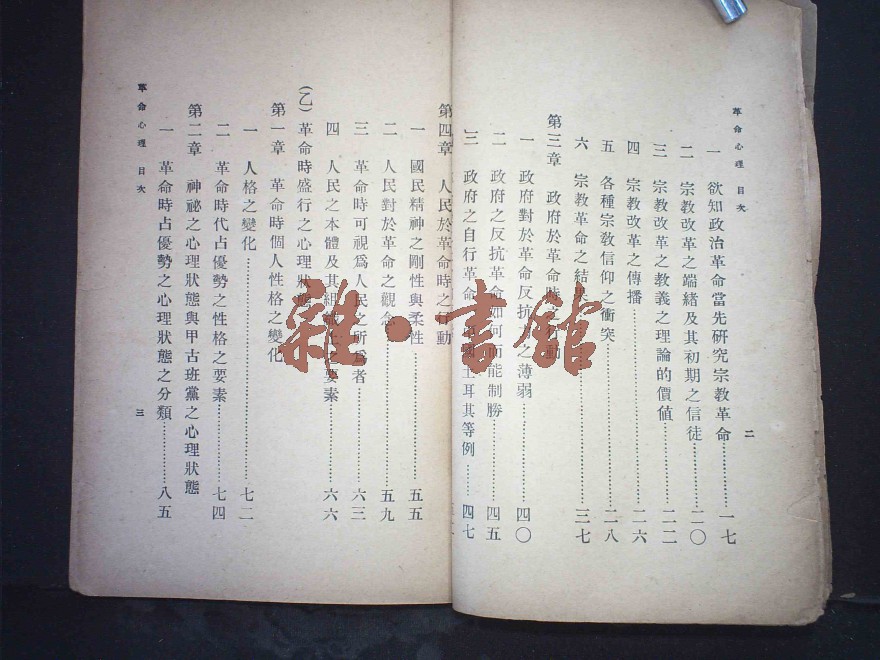 革命心理 目次
二
一 欲知政治革命當先研究宗教革命…………一七
二 宗教改革之端緒及其初期之信徒…………二〇
三 宗教改革之教義之理論的價値…………二二
四 宗教改革之傳播…………二六
五 各種宗教信仰之衝突…………二八
六 宗教革命之結果…………三七
第三章 政府於革命時之行動
一 政府對於革命反抗力之薄弱…………四〇
二 政府之反抗革命如何而能制勝…………四五
三 政府之自行革命 土耳其等例……四七
第四章 人民於革命時之行動
一 國民精神之剛性與柔性…………五五
二 人民對於革命之觀念…………五九
三 革命時可視爲人民之所爲者…………六三
四 人民之本體及其組 之要素…………六六
(乙)革命時盛行之心理狀態
第一章 革命時個人性格之變化
一 人格之變化…………七二
二 革命時代占優勢之性格之要素…………七四
第二章 神祕之心理狀態與甲古班黨之心理狀態
一 革命時占優勢之心理狀態之分類…………八五
革命心理 目次
三
雜·書館